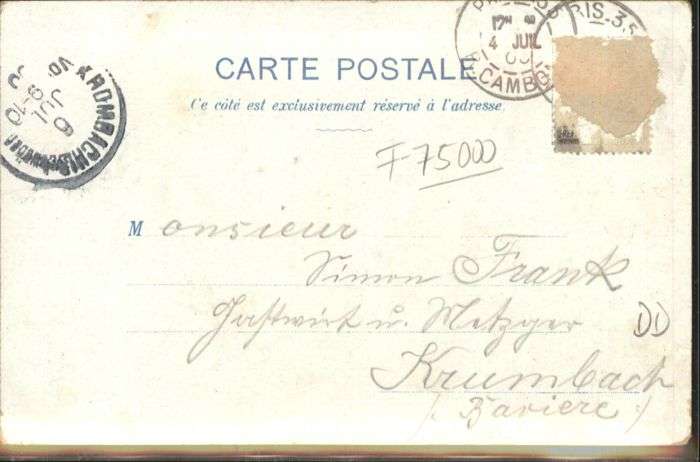 PARIS 35
12
4 JUIL
R. CAMBO
RIS. 35
CARTE POSTALE
Ce côté est exclusivement réservé à l'adresse
KRUMBACH (Schwaben)
6
JUL
9-10
F 75000
Monsieur
Simon Frank
Gastwirt u. Metzger
DD
Krumbach
(Baviere)